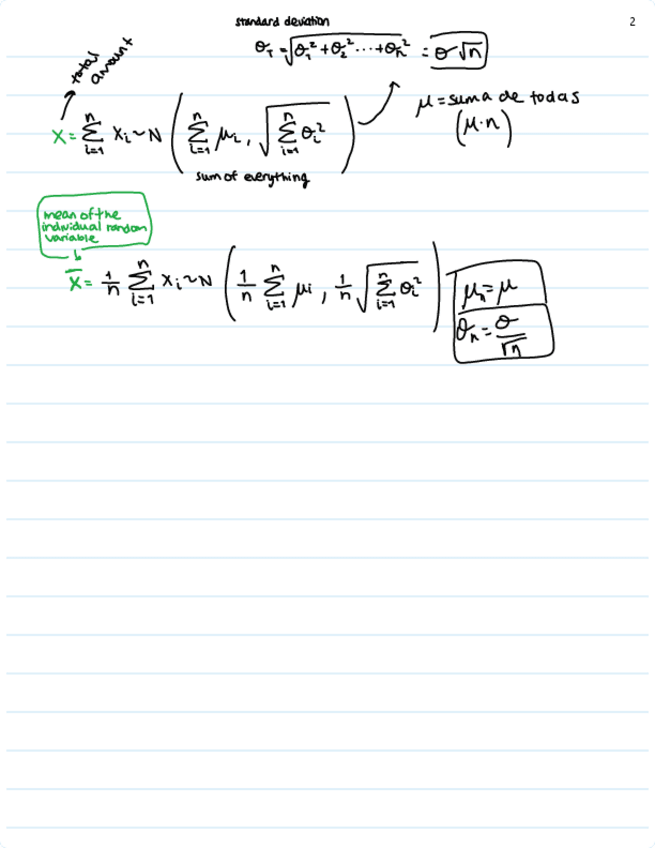 standard deviation
2
θ_T = √(θ₁² + θ₂² ... + θₙ²) = θ√n
total amount
X = Σ_{i=1}^{n} Xᵢ ~ N ( Σ_{i=1}^{n} μᵢ , √(Σ_{i=1}^{n} θᵢ²) )
μ = suma de todas
(μ·n)
sum of everything
mean of the
individual random
variable
X̄ = 1/n Σ_{i=1}^{n} Xᵢ ~ N ( 1/n Σ_{i=1}^{n} μᵢ , 1/n √(Σ_{i=1}^{n} θᵢ²) )
μₙ = μ
θₙ = θ/√n